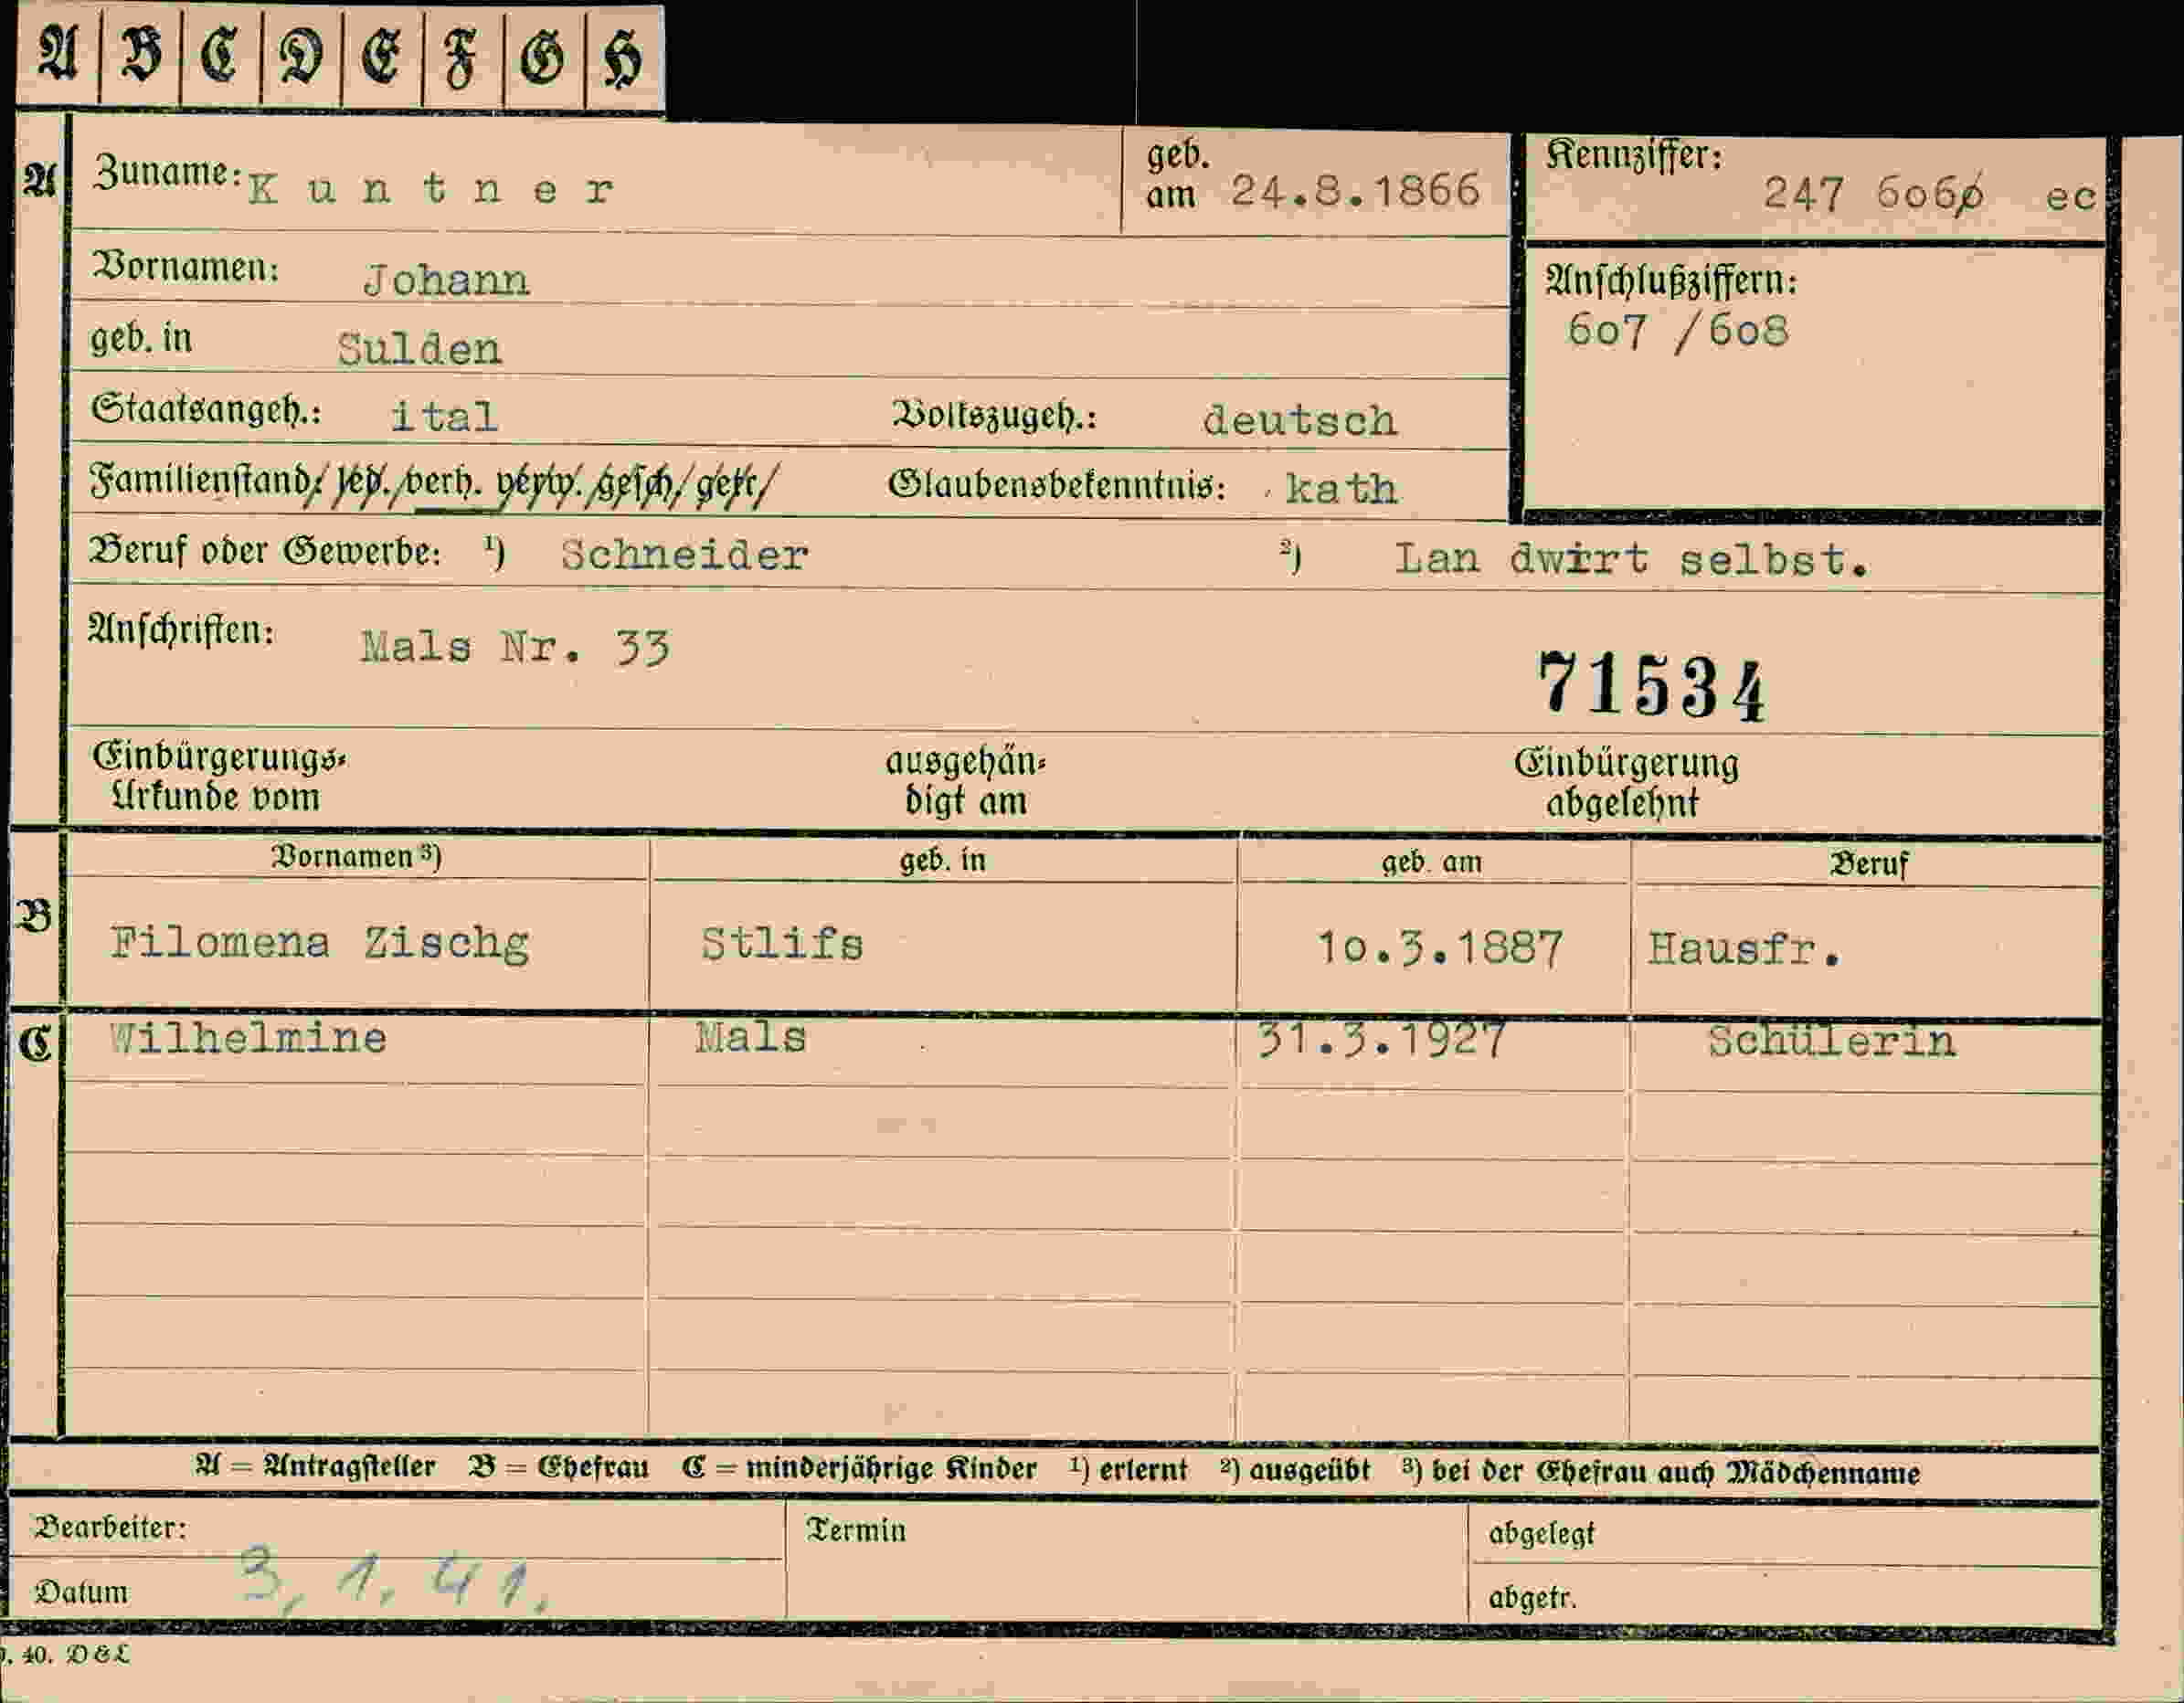 A B C D E F G H
A Zuname: Kuntner geb. am 24.8.1866 Kennziffer: 247 6o6 ec
Vornamen: Johann Anschlußziffern:
607 /6o8
geb. in Sulden
Staatsangeh.: ital Volkszugeh.: deutsch
Familienstand: led. verh. verw. gesch. getr. Glaubensbekenntnis: kath
Beruf oder Gewerbe: ¹) Schneider ²) Lan dwirt selbst.
Anschriften: Mals Nr. 33
71534
Einbürgerungs- ausgehän- Einbürgerung
Urkunde vom digt am abgelehnt
Vornamen ³) geb. in geb. am Beruf
B Filomena Zischg Stlifs 1o.3.1887 Hausfr.
C Wilhelmine Mals 31.3.1927 Schülerin
A = Antragsteller B = Ehefrau C = minderjährige Kinder ¹) erlernt ²) ausgeübt ³) bei der Ehefrau auch Mädchenname
Bearbeiter: Termin abgelegt
Datum 3, 1, 41, abgetr.
40. D & L